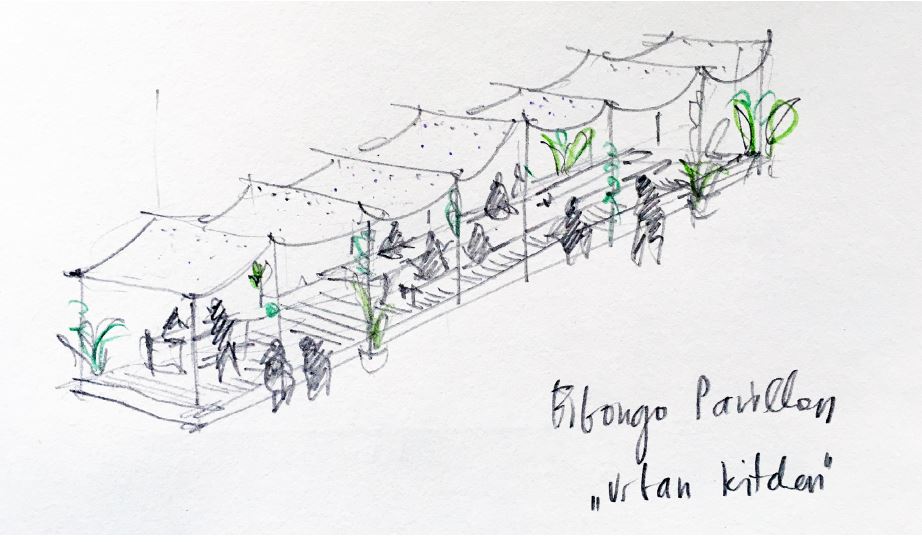 Bibongo Pavillon
„urban kitchen"